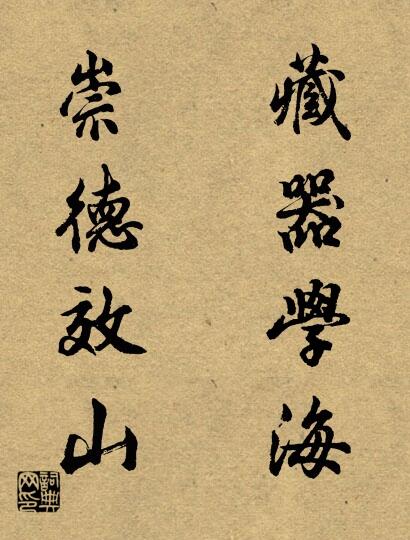 藏器學海
崇德效山
詞典
网印